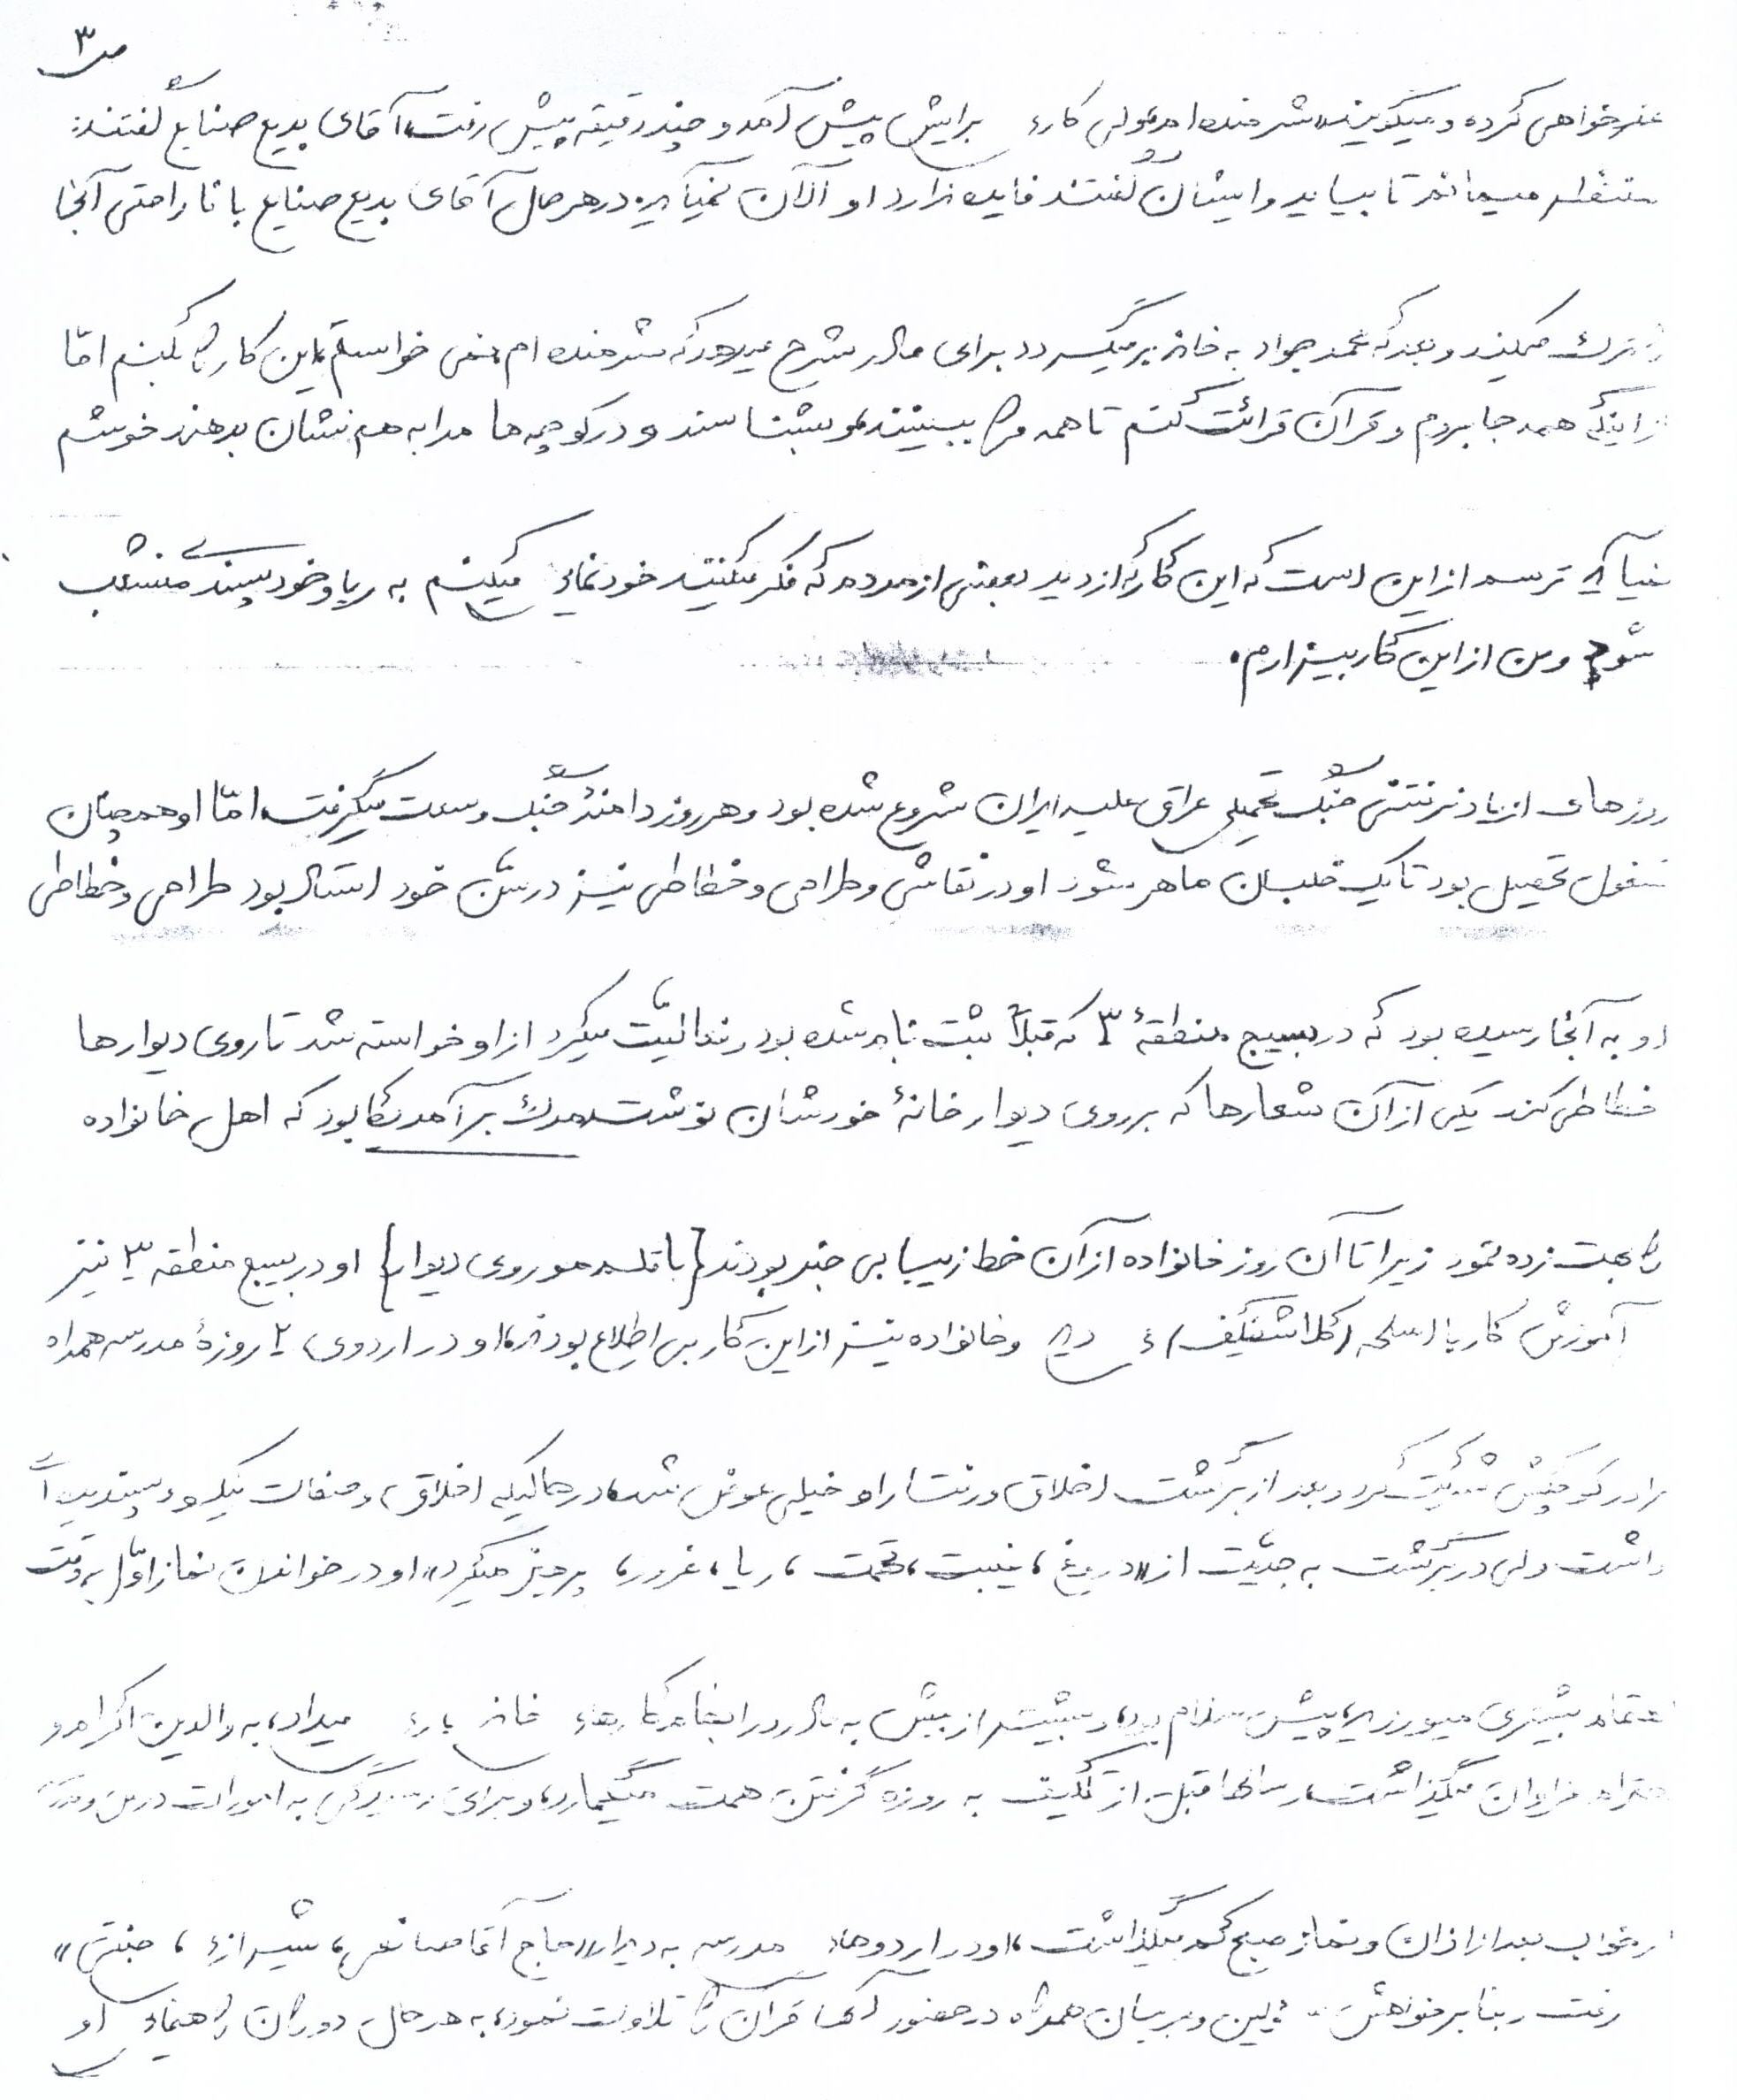 ص۳
عذرخواهی کرده و میگویند شرمنده ام ولی کاری برایش پیش آمد و چند دقیقه پیش رفت، آقای بدیع صنایع گفتند:
منتظر میمانم تا بیاید و ایشان گفتند فایده ندارد او الآن نمیآید در هر حال آقای بدیع صنایع با ناراحتی آنجا
را ترک میکنند و بعد که محمد جواد به خانه برمیگردد برای مادر شرح میدهد که شرمنده ام، نمی خواستم این کار را بکنم امّا
از اینکه همه جا بروم و قرآن قرائت کنم تا همه مرا ببینند و بشناسند و در کوچه ها مرا به هم نشان بدهند خوشم
نمیآید ترسم از این است که این کار که از دید بعضی از مردم که فکر میکنند خودنمایی میکنم به ریا و خودپسندی منشعب
شود و من از این کار بیزارم.
روزهای از یاد نرفتنی جنگ تحمیلی عراق علیه ایران شروع شده بود و هر روز دامنهٔ جنگ وسعت میگرفت، امّا او همچنان
مشغول تحصیل بود تا یک خلبان ماهر شود او در نقاشی و طراحی و خطاطی نیز در سنّ خود استاد بود طراحی و خطاطی
او به آنجا رسیده بود که در بسیج منطقهٔ ۳ که قبلاً ثبت نام شده بود و فعالیّت میکرد از او خواسته شد تا روی دیوارها
خطاطی کند یکی از آن شعارها که بر روی دیوار خانهٔ خودشان نوشت، مرگ بر آمریکا بود که اهل خانواده
را بهت زده نمود زیرا تا آن روز خانواده از آن خط زیبا بی خبر بودند {با قلم مو روی دیوار} او در بسیج منطقه ۳ نیز
آموزش کار با اسلحه (کلاشینکف) دید و خانواده نیز از این کار بی اطلاع بودند، او در اردوی ۲ روزهٔ مدرسه همراه
برادر کوچکش شرکت کرد و بعد از برگشت اخلاق و رفتار او خیلی عوض شد، در حالیکه اخلاق و صفات نیک و پسندیده ای
داشت ولی در برگشت به جدّیت از "دروغ، غیبت، تهمت، ریا، غرور، پرهیز میکرد" او در خواندن نماز اوّل وقت
اهتمام بیشتری میورزید، پیش سلام بود، و بیشتر از پیش به مادر در انجام کارهای خانه یاری میداد، به والدین اکرام و
احترام فراوان میگذاشت، سالها قبل از تکلیف به روزه گرفتن همت میگمارد، و برای رسیدگی به امورات درس و
از خواب بعد از اذان و نماز صبح کم میگذاشت، او در اردوهای مدرسه به دیدار "حاج آقا صانعی، شیرازی، جنتی"
رفت و بنا بر خواهش و مربیان همراه در حضور آنها قرآن را تلاوت نمود، به هر حال دوران راهنمایی او